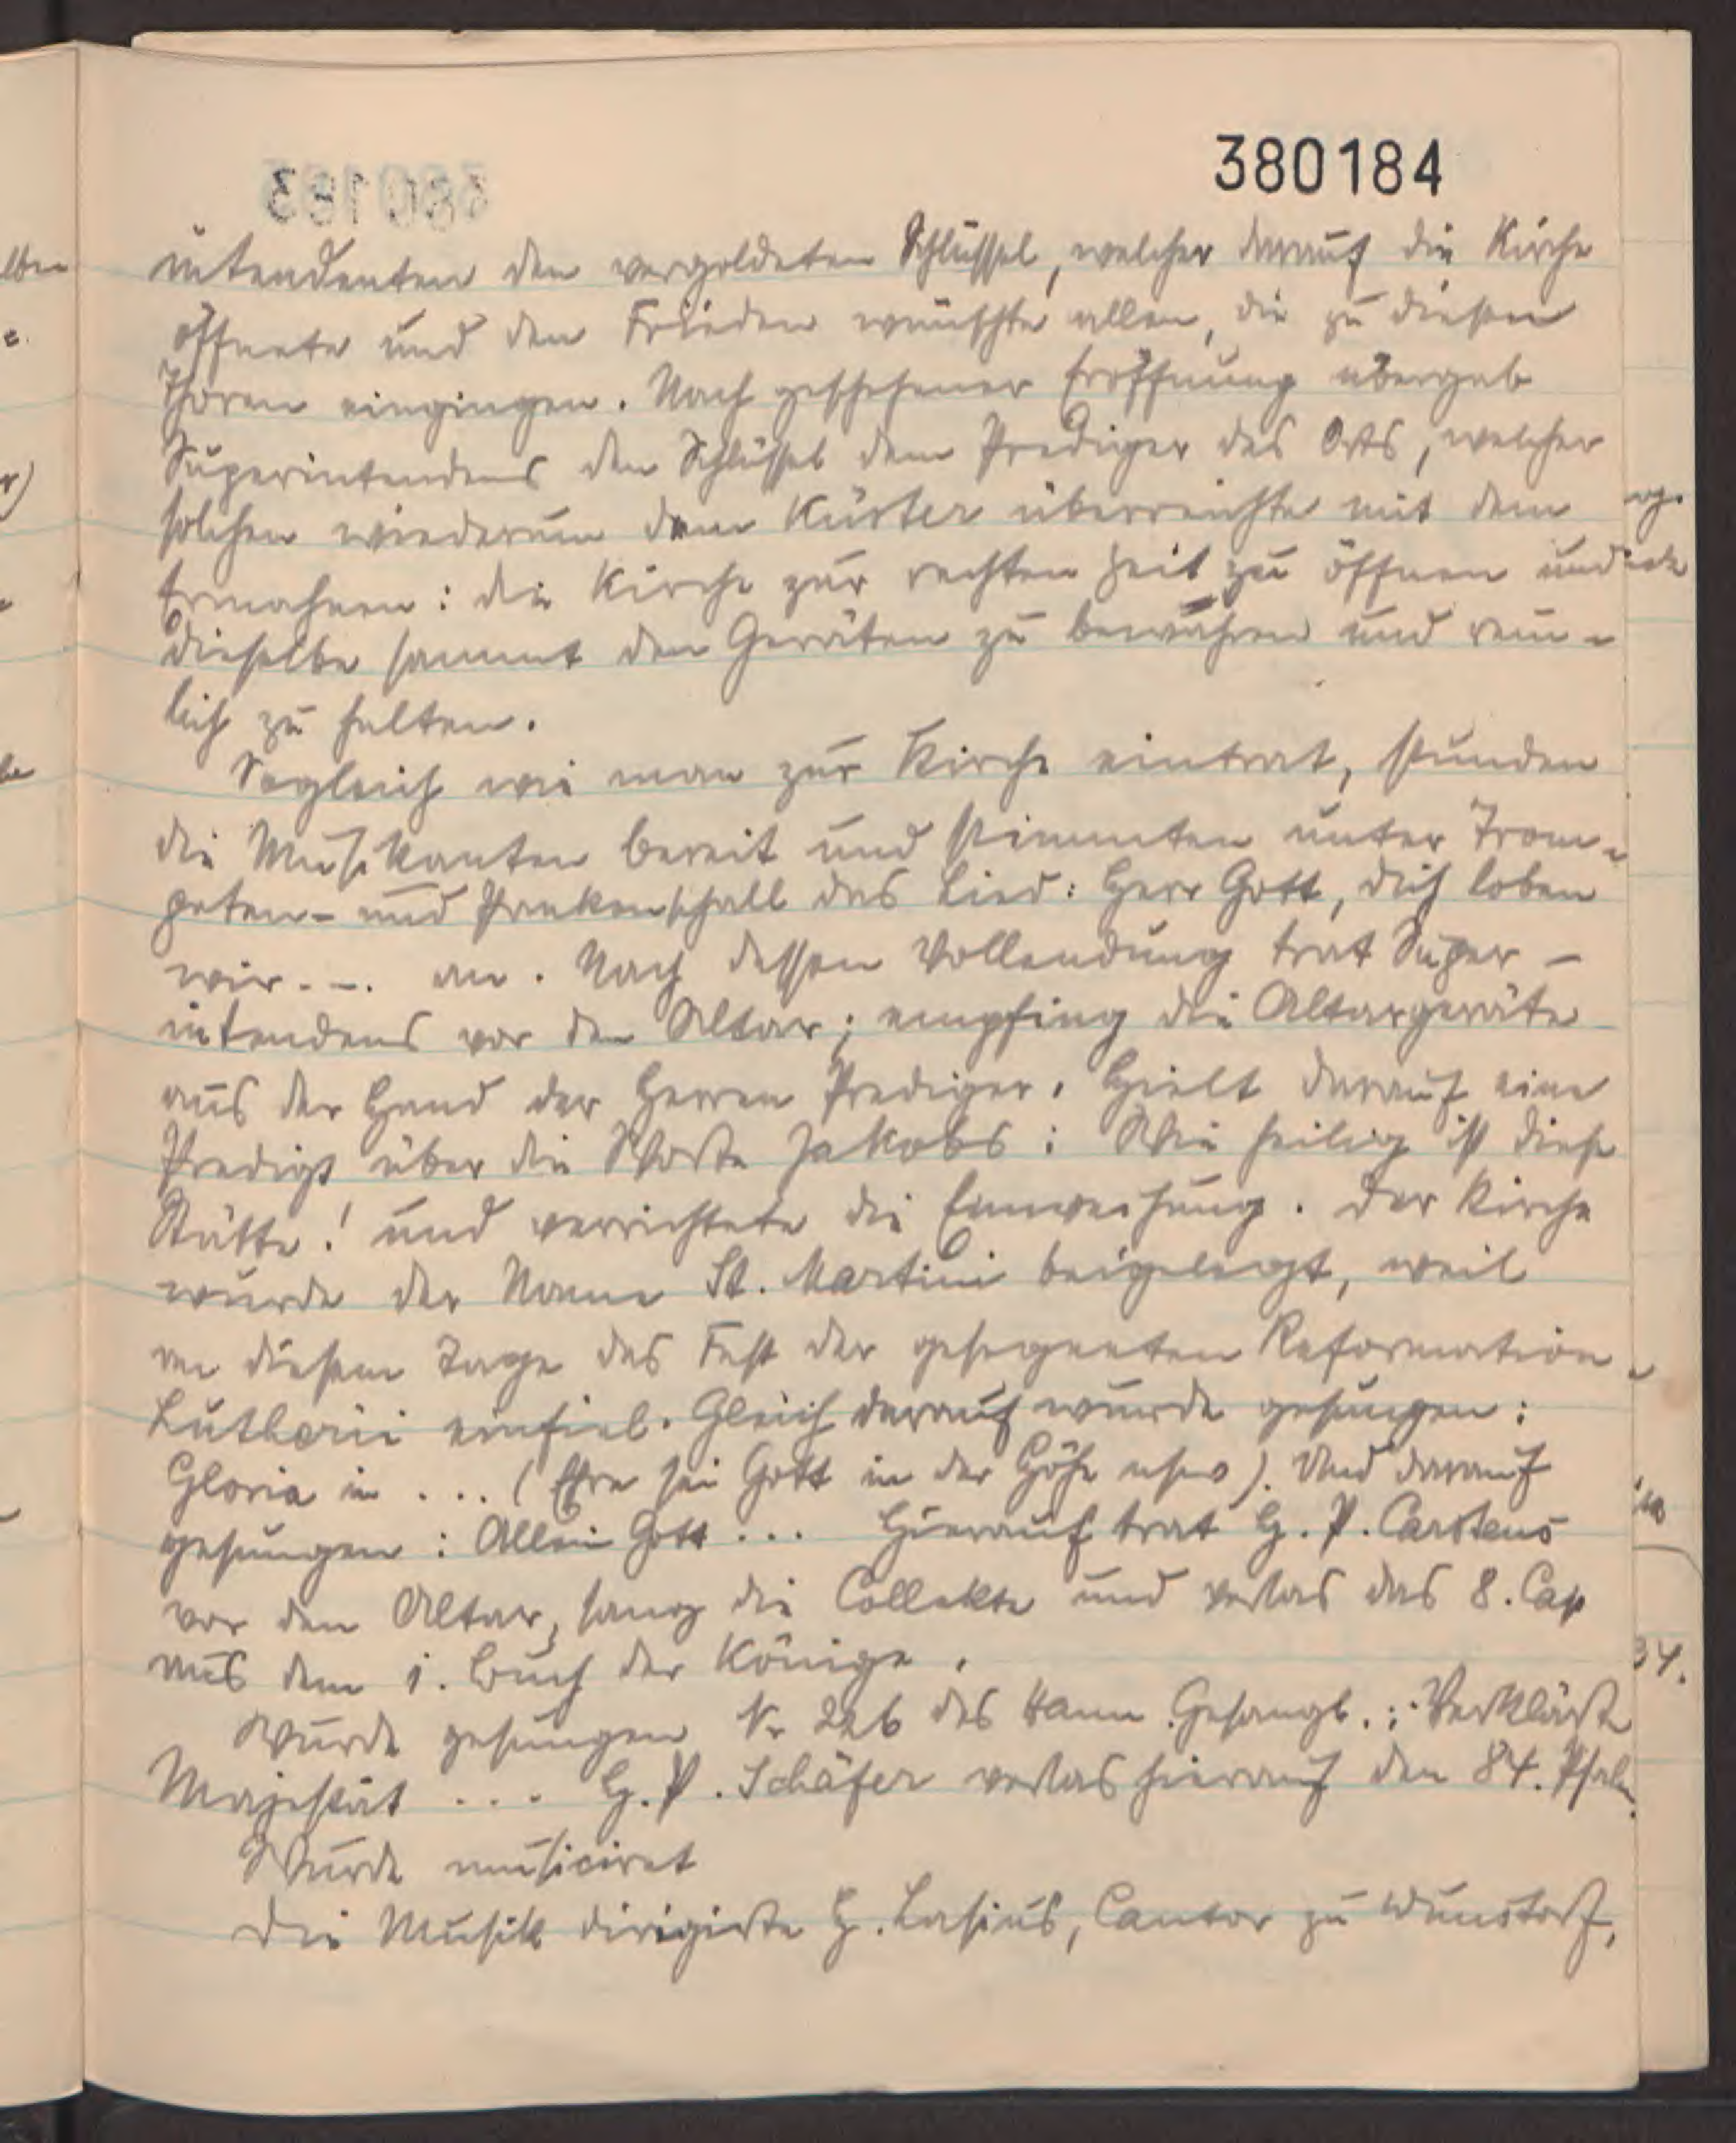 380184
intendenten den vergoldeten Schlüssel, welcher darauf die Kirche
öffnete und den Frieden wünschte allen, die zu diesen
Thoren eingingen. Nach geschehener Eröffnung übergab
Superintendens den Schlüssel dem Prediger des Orts, welcher
solchen wiederum dem Küster überreichte mit dem
Ermahnen: die Kirche zur rechten Zeit zu öffnen und
dieselbe sammt den Geräten zu bewahren und rein-
lich zu halten.
Sogleich wie man zur Kirche eintrat, stunden
die Musikanten bereit und stimmten unter Trom-
peten- und Paukenschall das Lied: Herr Gott, dich loben
wir... an. Nach dessen Vollendung trat Super-
intendens vor den Altar; empfing die Altargeräte
aus der Hand der Herren Prediger. Hielt darauf eine
Predigt über die Worte Jakobs: Wie heilig ist diese
Stätte! und verrichtete die Einweihung. Der Kirche
wurde der Name St. Martini beigelegt, weil
an diesem Tage das Fest der gesegneten Reformation
Lutheri einfiel. Gleich darauf wurde gesungen:
Gloria in ... (Ehre sei Gott in der Höhe usw). Und darauf
gesungen: Allein Gott ... Hierauf trat H. P. Carstens
vor den Altar, sang die Collekte und verlas das 8. Cap
aus dem 1. Buch der Könige.
Wurde gesungen Nr 226 des Hann. Gesangb.: Verklärte
Majestät .... H. P. Schäfer verlas hierauf den 84. Psalm.
Wurde musiciret
Die Musik dirigirte H. Lasius, Cantor zu Wunstorf,